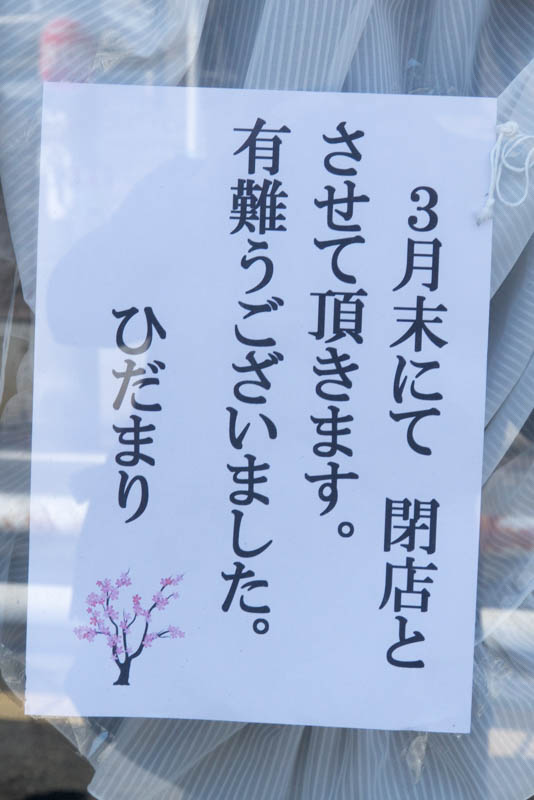 3月末にて　閉店と
させて頂きます。
有難うございました。
ひだまり